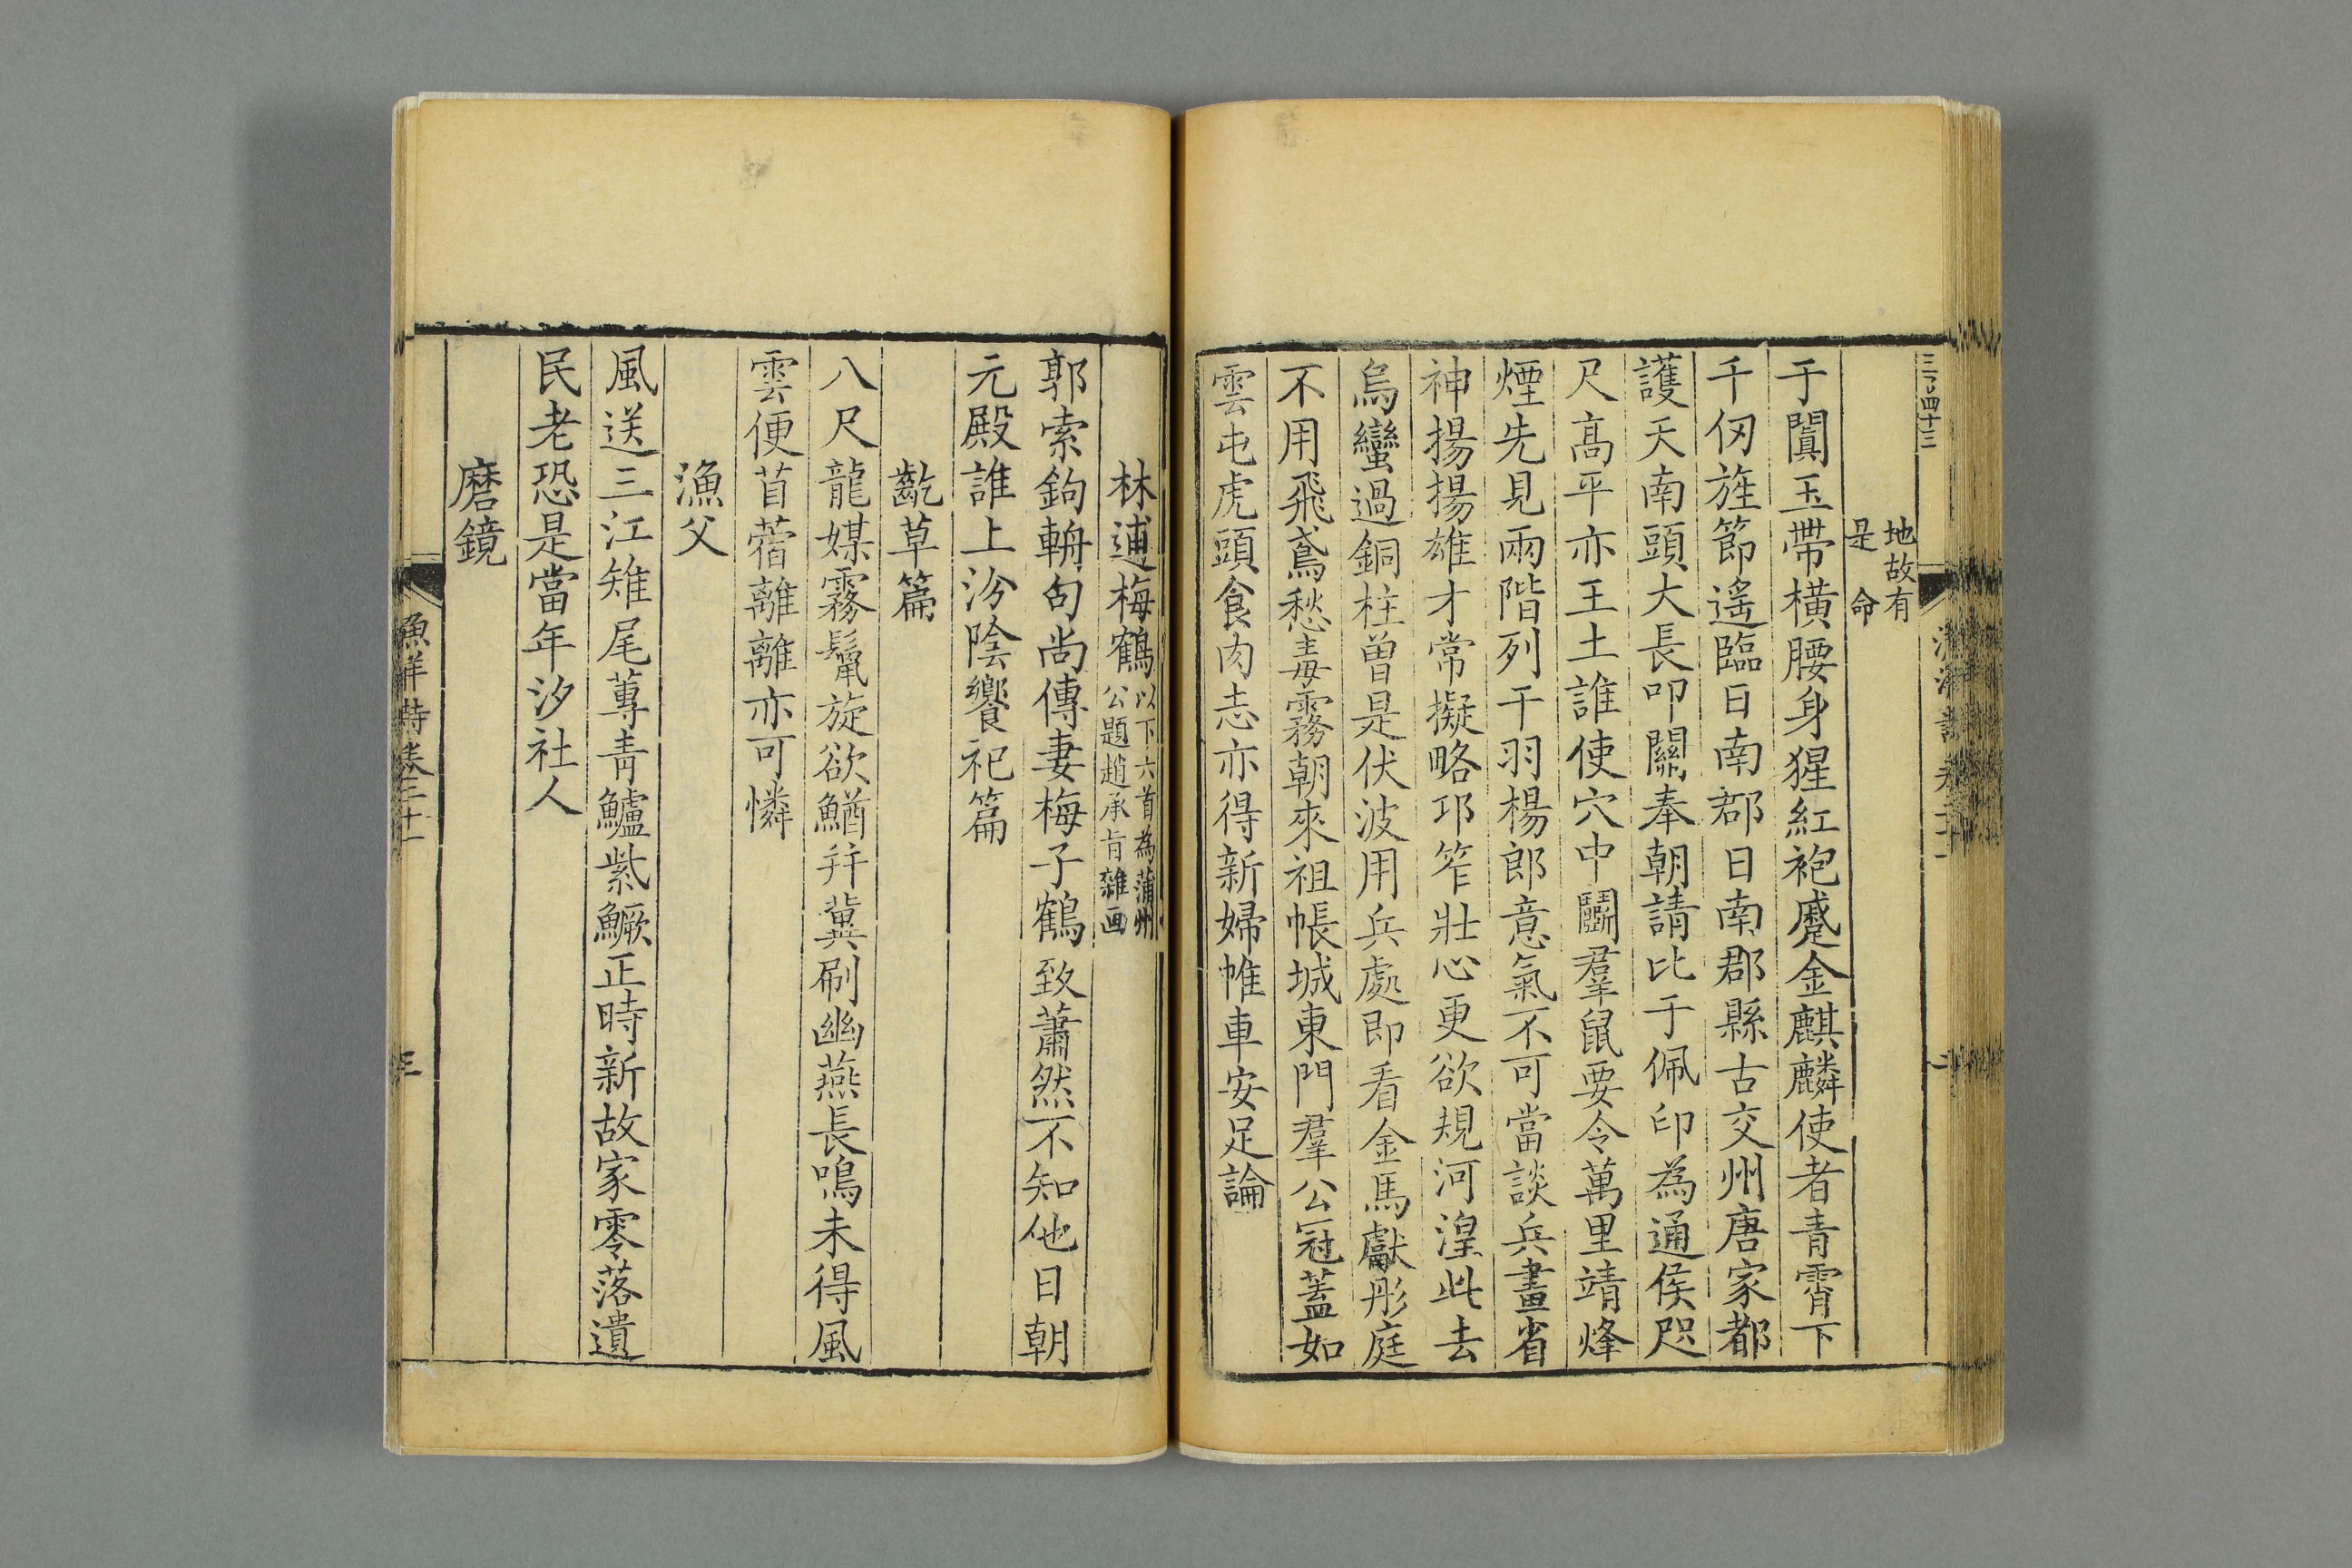 地故有
是命
于闐玉帶橫腰身猩紅袍蹙金麒麟使者青霄下
千仞旌節遙臨日南郡日南郡縣古交州唐家都
護天南頭大長叩關奉朝請比于佩印為通侯咫
尺高平亦王土誰使穴中鬭羣鼠要令萬里靖烽
煙先見兩階列干羽楊郎意氣不可當談兵畫省
神揚揚雄才常擬略邛笮壯心更欲規河湟此去
烏蠻過銅柱曾是伏波用兵處即看金馬獻彤庭
不用飛鳶愁毒霧朝來祖帳城東門羣公冠蓋如
雲屯虎頭食肉志亦得新婦帷車安足論
林逋梅鶴以下六首為蒲州
公題趙承旨雜画
郭索鉤輈句尚傳妻梅子鶴致蕭然不知他日朝
元殿誰上汾陰饗祀篇
齕草篇
八尺龍媒霧鬣旋欲鰌幷冀刷幽燕長鳴未得風
雲便苜蓿離離亦可憐
漁父
風送三江雉尾蓴青鱸紫鱖正時新故家零落遺
民老恐是當年汐社人
磨鏡
漁洋詩卷二十一
三